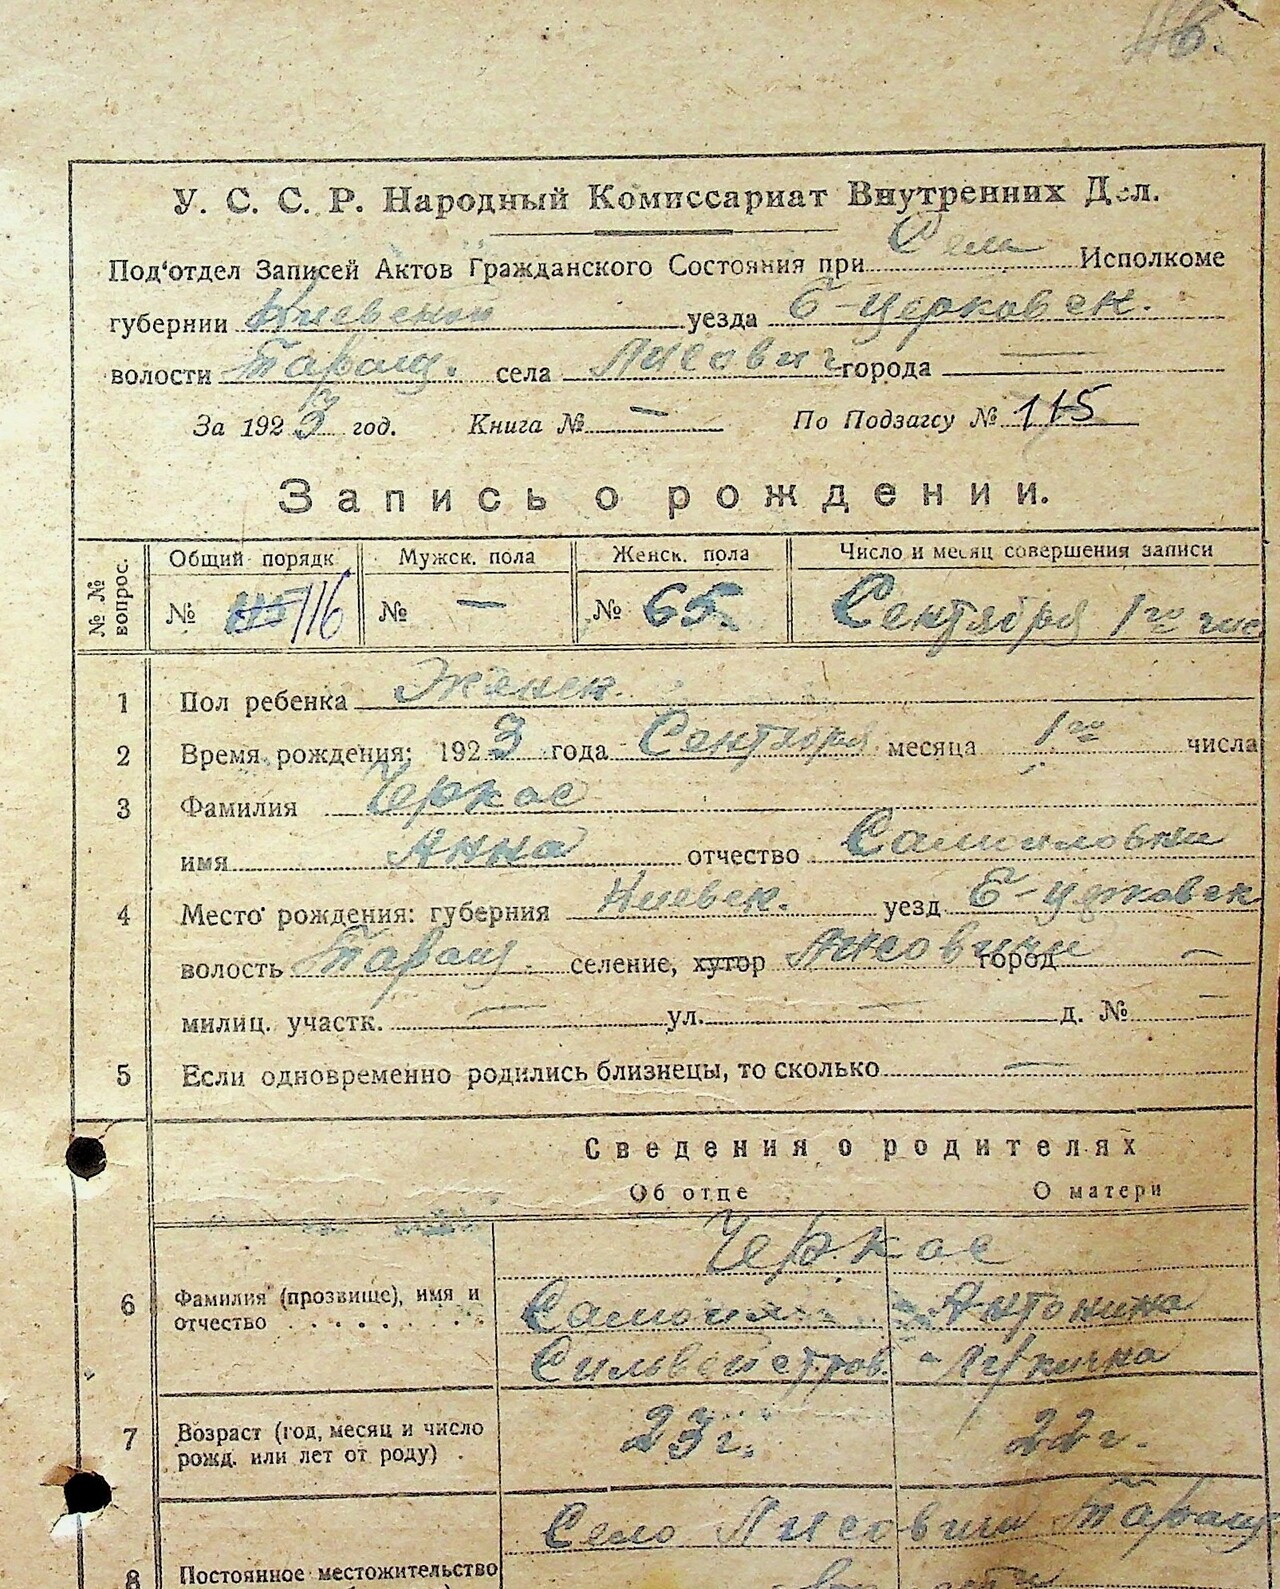 У. С. С. Р. Народный Комиссариат Внутренних Дел.
Под'отдел Записей Актов Гражданского Состояния при Сель Исполкоме
губернии Киевской уезда Б-Церковск.
волости Таращ. села Лисович города —
За 1923 год. Книга № — По Подзагсу № 115
Запись о рождении.
№ № вопрос. Общий порядк Мужск. пола Женск. пола Число и месяц совершения записи
№ 116 № — № 65. Сентября 1го чис
1 Пол ребенка Женск.
2 Время рождения: 1923 года Сентября месяца 1го числа
3 Фамилия Черкас
имя Анна отчество Самойловна
4 Место рождения: губерния Киевск. уезд Б-Церковск
волость Таращ. селение, хутор Лисовичи город —
милиц. участк. — ул. — д. № —
5 Если одновременно родились близнецы, то сколько —
Сведения о родителях
Об отце О матери
Черкас
6 Фамилия (прозвище), имя и отчество Самоил Антонина
Сильвестров. Лукична
7 Возраст (год, месяц и число рожд. или лет от роду) 23 г. 22 г.
Село Лисовичи Таращ
8 Постоянное местожительство